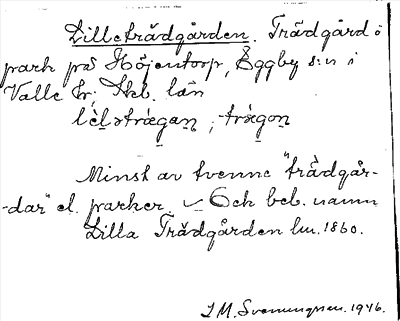 Lilleträdgården. Trädgård o
park på Höjentorp, Eggby s:n i
Valle hr; Skb. län
lèlətrǽgan̥, -trǽgon̥
Minst av tvenne "trädgår-
-dar" el. parker. – Och beb. namn
Lilla Trädgården hu. 1860.
J M. Svenungsson. 1946.